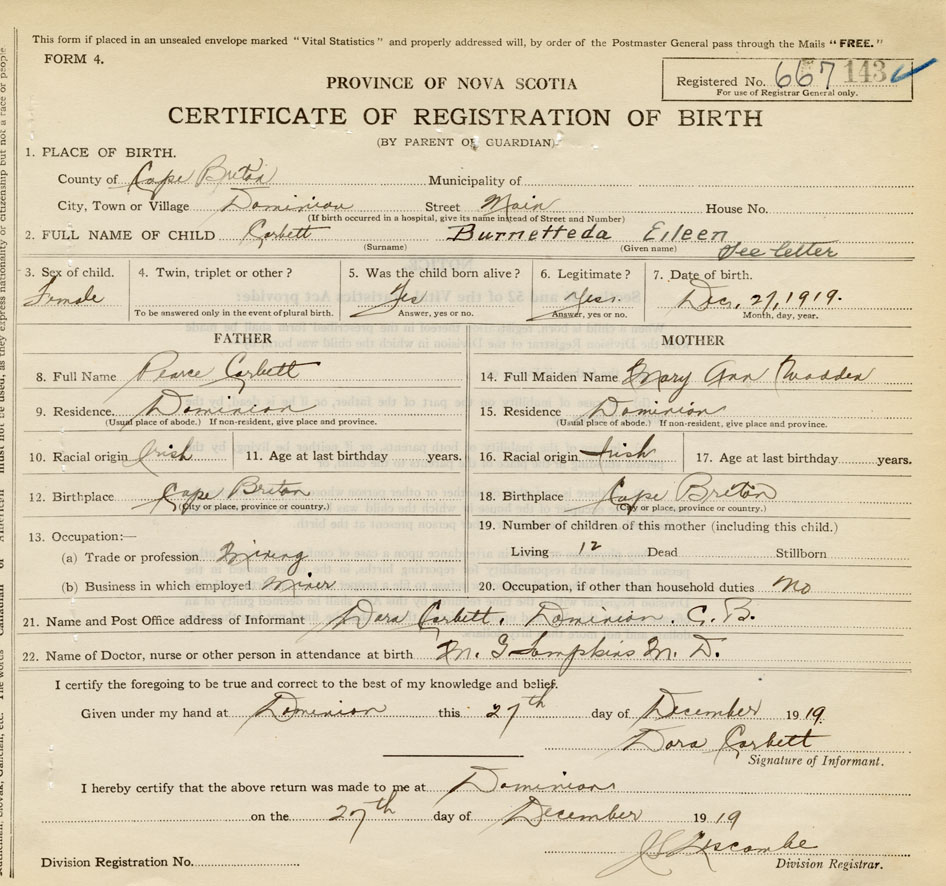 This form if placed in an unsealed envelope marked "Vital Statistics" and properly addressed will, by order of the Postmaster General pass through the Mails "FREE."
FORM 4.
Registered No. 667 143
For use of Registrar General only.
PROVINCE OF NOVA SCOTIA
CERTIFICATE OF REGISTRATION OF BIRTH
(BY PARENT OF GUARDIAN)
1. PLACE OF BIRTH.
County of Cape Breton Municipality of
City, Town or Village Dominion Street Main House No.
(If birth occurred in a hospital, give its name instead of Street and Number)
2. FULL NAME OF CHILD Corbett Burnetteda Eileen
(Surname) (Given name) See letter
3. Sex of child. 4. Twin, triplet or other? 5. Was the child born alive? 6. Legitimate? 7. Date of birth.
Female Yes Yes. Dec, 27, 1919.
To be answered only in the event of plural birth. Answer, yes or no. Answer, yes or no. Month, day, year.
FATHER MOTHER
8. Full Name Pearce Corbett 14. Full Maiden Name Mary Ann Madden
9. Residence. Dominion 15. Residence Dominion
(Usual place of abode.) If non-resident, give place and province. (Usual place of abode.) If non-resident, give place and province.
10. Racial origin Irish 11. Age at last birthday years. 16. Racial origin Irish 17. Age at last birthday years.
12. Birthplace Cape Breton 18. Birthplace Cape Breton
(City or place, province or country.) (City or place, province or country.)
13. Occupation:— 19. Number of children of this mother (including this child.)
(a) Trade or profession Mining Living 12 Dead Stillborn
(b) Business in which employed Miner 20. Occupation, if other than household duties No
21. Name and Post Office address of Informant Dora Corbett. Dominion. C. B.
22. Name of Doctor, nurse or other person in attendance at birth M. G Tompkins M. D.
I certify the foregoing to be true and correct to the best of my knowledge and belief.
Given under my hand at Dominion this 27th day of December 1919.
Dora Corbett
Signature of Informant.
I hereby certify that the above return was made to me at Dominion
on the 27th day of December 1919
Division Registration No. Division Registrar.